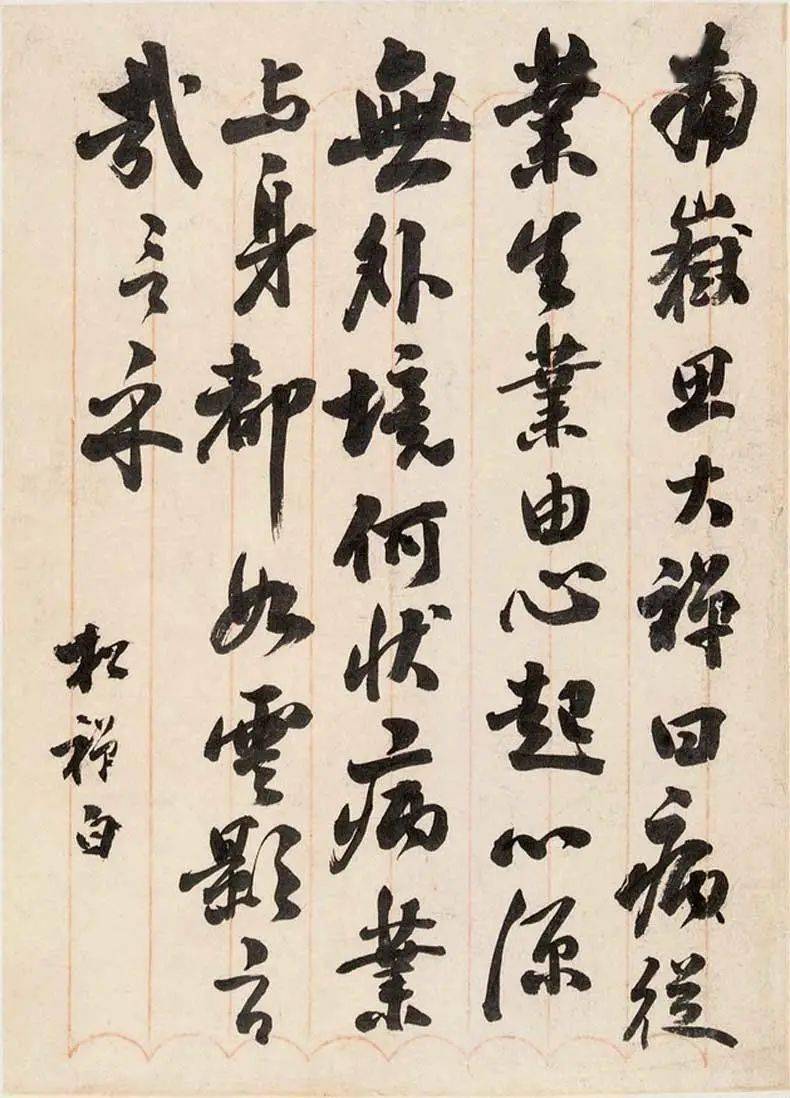 南嶽思大禪曰病從
業生業由心起心源
無外境何狀病業
与身都如雲影言
哉言乎
松禪白